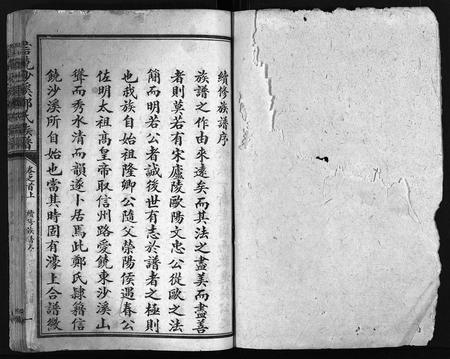 續修族譜序
族譜之作由來遠矣而其法之盡美而盡善
者則莫若有宋廬陵歐陽文忠公從歐之法
簡而明若公者誠後世有志於譜者之極則
也我族自始祖隆卿公隨父榮陽侯遇春公
佐明太祖高皇帝取信州路愛饒東沙溪山
聳而秀水清而韻遂卜居焉此鄭氏隸籍信
饒沙溪所自始也當其時固有濠上合譜緻
卷之首上
續修族譜序
一